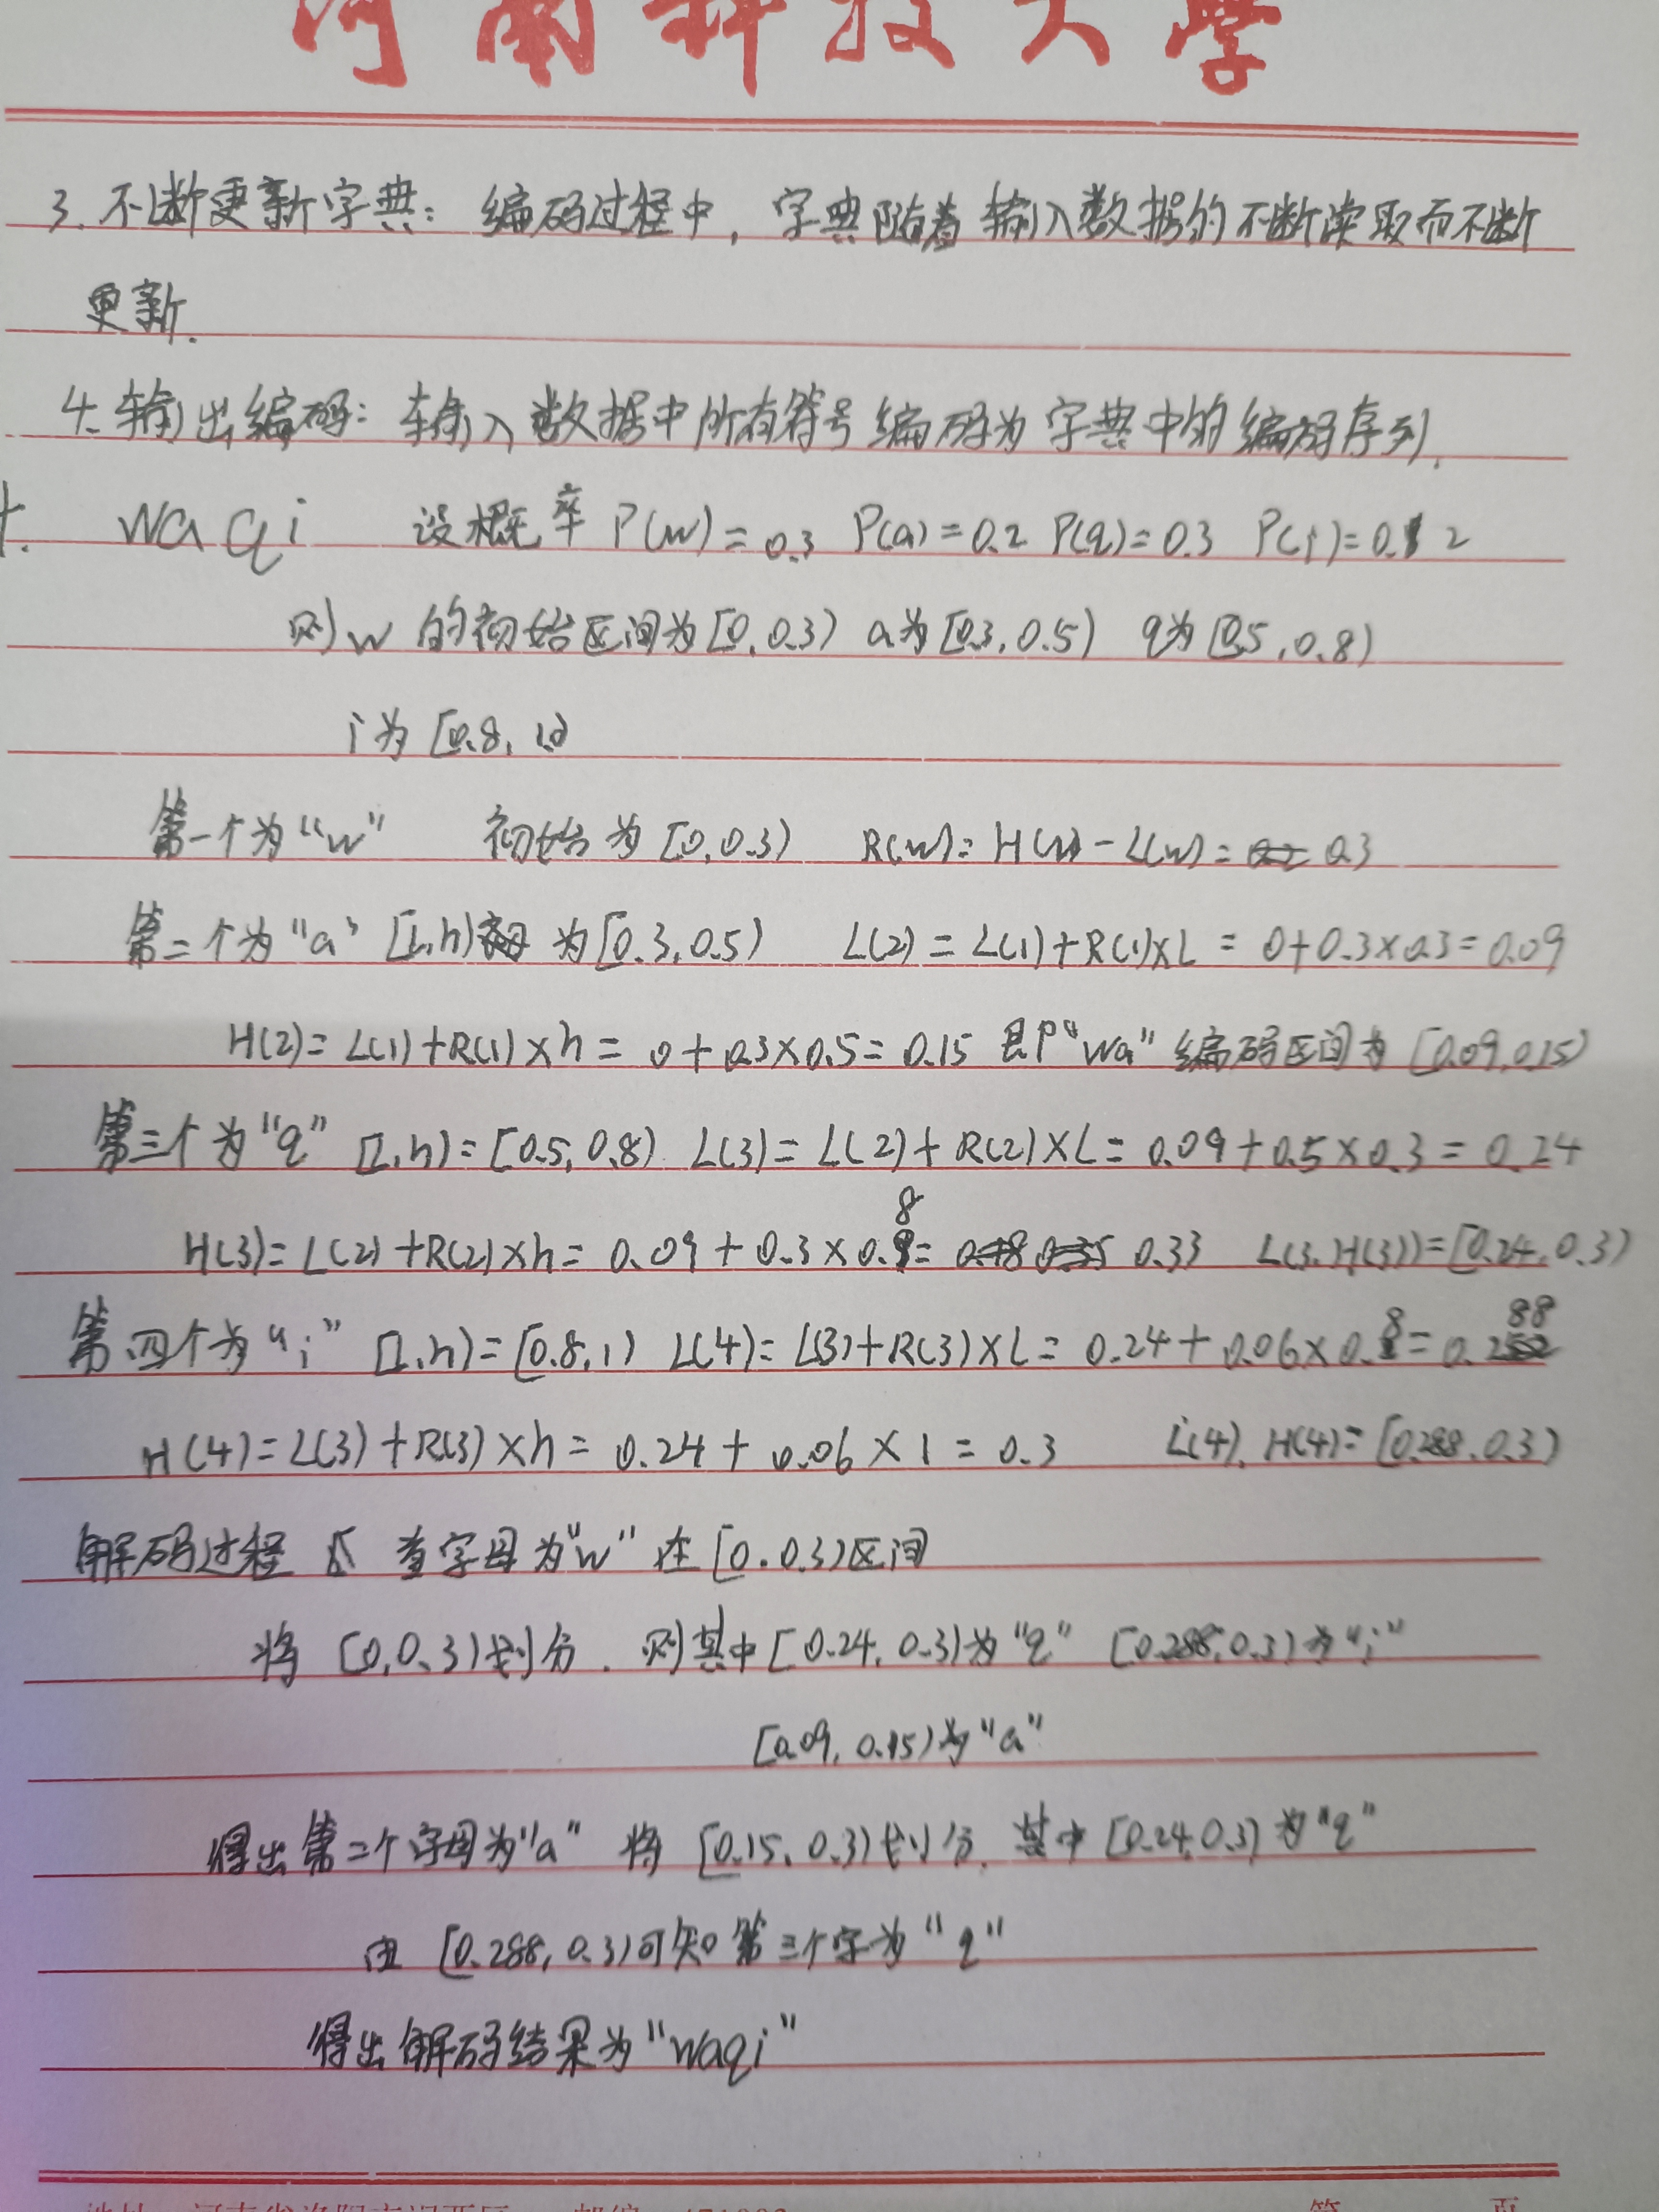 河南科技大学
3. 不断更新字典：编码过程中，字典随着输入数据的不断读取而不断
更新.
4. 输出编码：输入数据中所有符号编码为字典中的编码序列.
waqi 设概率 P(w)=0.3 P(a)=0.2 P(q)=0.3 P(i)=0.2
则w的初始区间为[0,0.3) a为[0.3,0.5) q为[0.5,0.8)
i为[0.8,1.0)
第一个为"w" 初始为[0,0.3) R(w)=H(w)-L(w)=0.3
第二个为"a" [L,h)为[0.3,0.5) L(2)=L(1)+R(1)×L=0+0.3×0.3=0.09
H(2)=L(1)+R(1)×h=0+0.3×0.5=0.15 即"wa"编码区间为[0.09,0.15)
第三个为"q" [L,h)=[0.5,0.8) L(3)=L(2)+R(2)×L=0.09+0.5×0.3=0.24
H(3)=L(2)+R(2)×h=0.09+0.3×0.8=0.33 L(3,H(3))=[0.24,0.3)
第四个为"i" [L,h)=[0.8,1) L(4)=L(3)+R(3)×L=0.24+0.06×0.8=0.288
H(4)=L(3)+R(3)×h=0.24+0.06×1=0.3 L(4),H(4)=[0.288,0.3)
解码过程 字母为"w"在[0.0.3)区间
将[0,0.3)划分.则其中[0.24,0.3)为"q" [0.288,0.3)为"i"
[0.09,0.15)为"a"
得出第二个字母为"a" 将[0.15,0.3)划分.其中[0.24,0.3)为"q"
由[0.288,0.3)可知第三个字为"q"
得出解码结果为"waqi"